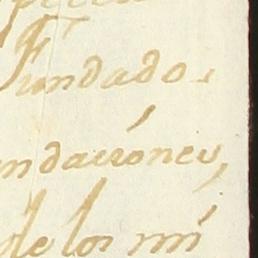 Fundado.
ndacióney,
de los mi